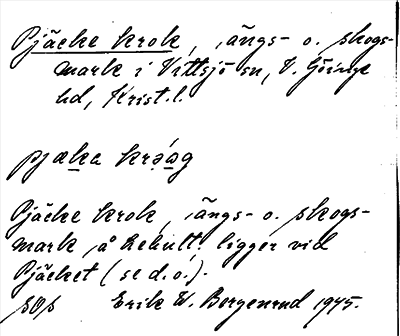 Pjäcke krok, ängs- o. skogs-
mark i Vittsjö sn, V. Göinge
hd, Krist. l.
pjæka krɔ́ag
Pjäcke krok, ängs- o. skogs-
mark å Lehult. ligger vid
Pjäcket (se d. o.).
Erik W. Borgenrud 1945.